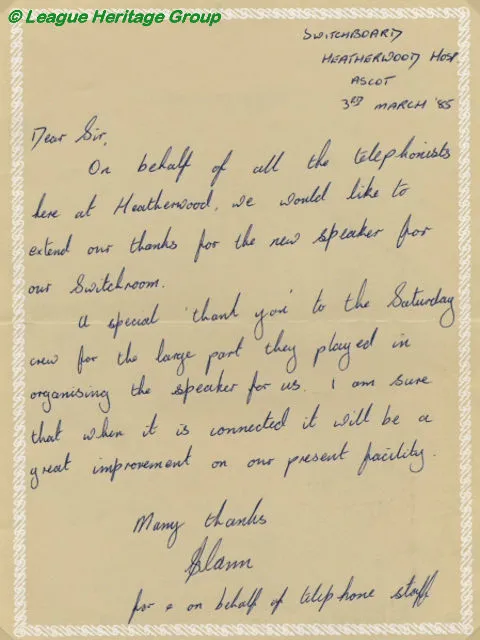 © League Heritage Group
SWITCHBOARD
HEATHERWOOD HOSP
ASCOT
3RD MARCH '85
Dear Sir,
On behalf of all the telephonists
here at Heatherwood, we would like to
extend our thanks for the new speaker for
our Switchroom.
A special 'thank you' to the Saturday
crew for the large part they played in
organising the speaker for us. I am sure
that when it is connected it will be a
great improvement on our present facility.
Many thanks
for & on behalf of telephone staff